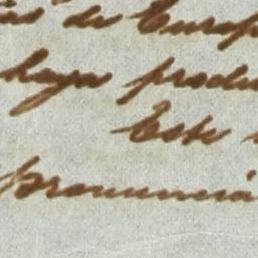 de Europ
haya produ
Este
pronunciá